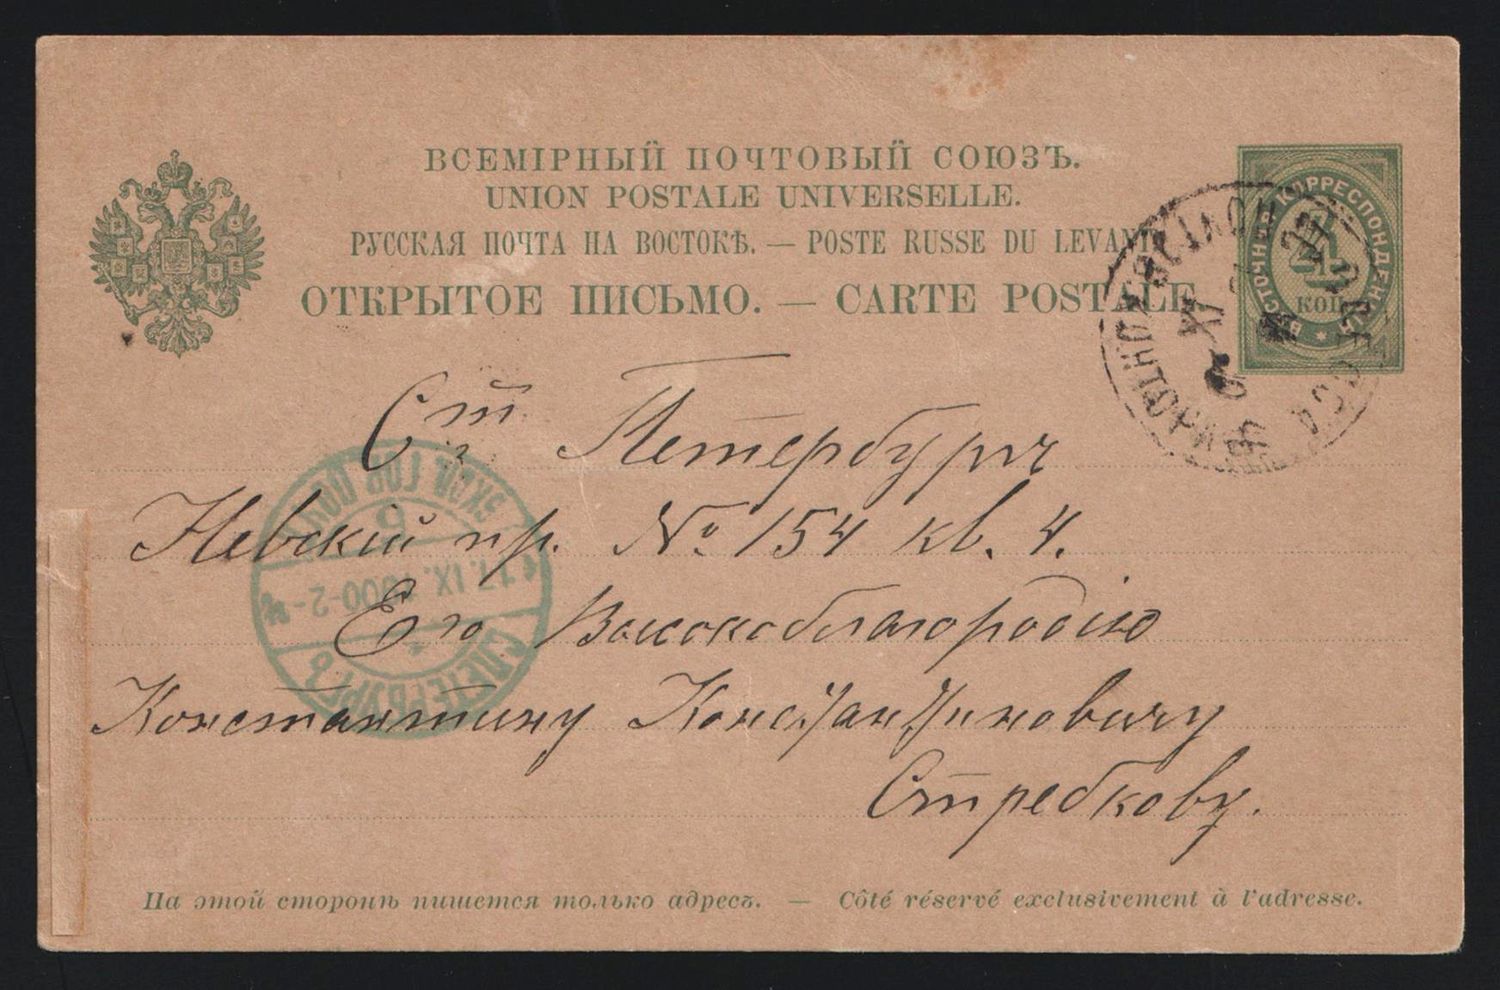 ВСЕМІРНЫЙ ПОЧТОВЫЙ СОЮЗЪ.
UNION POSTALE UNIVERSELLE.
РУССКАЯ ПОЧТА НА ВОСТОКѢ. — POSTE RUSSE DU LEVANT.
ОТКРЫТОЕ ПИСЬМО. — CARTE POSTALE
ВОСТОЧНАЯ КОРРЕСПОНДЕНЦІЯ
4
КОП.
ОДЕССА
Ст. Петербургъ
Невскій пр. № 154 кв. 4.
17.IX.1900-2-
С.ПЕТЕРБУРГЪ
Его Высокоблагородію
Константину Константиновичу
Стребкову.
На этой сторонѣ пишется только адресъ. — Côté réservé exclusivement à l'adresse.